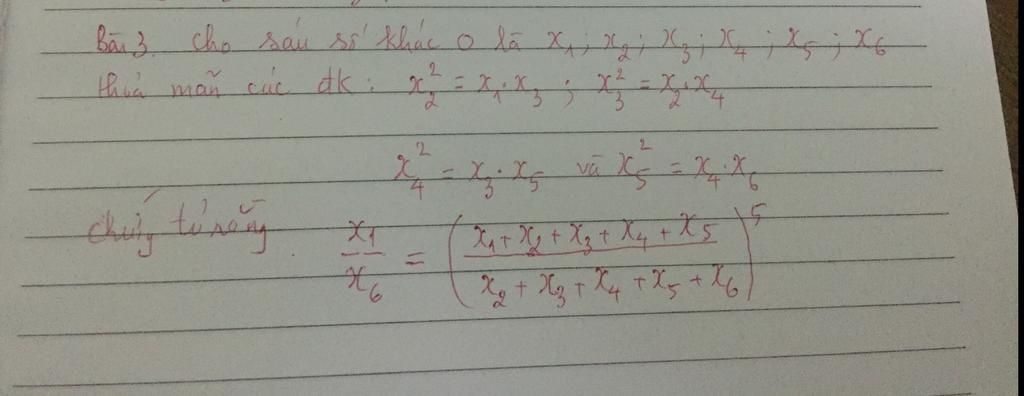 Bài 3. Cho sáu số khác 0 là x₁ ; x₂ ; x₃ ; x₄ ; x₅ ; x₆
thoả mãn các đk : x₂² = x₁ . x₃ ; x₃² = x₂ . x₄
x₄² = x₃ . x₅ và x₅² = x₄ . x₆
chứng tỏ rằng x₁/x₆ = ((x₁ + x₂ + x₃ + x₄ + x₅)/(x₂ + x₃ + x₄ + x₅ + x₆))⁵